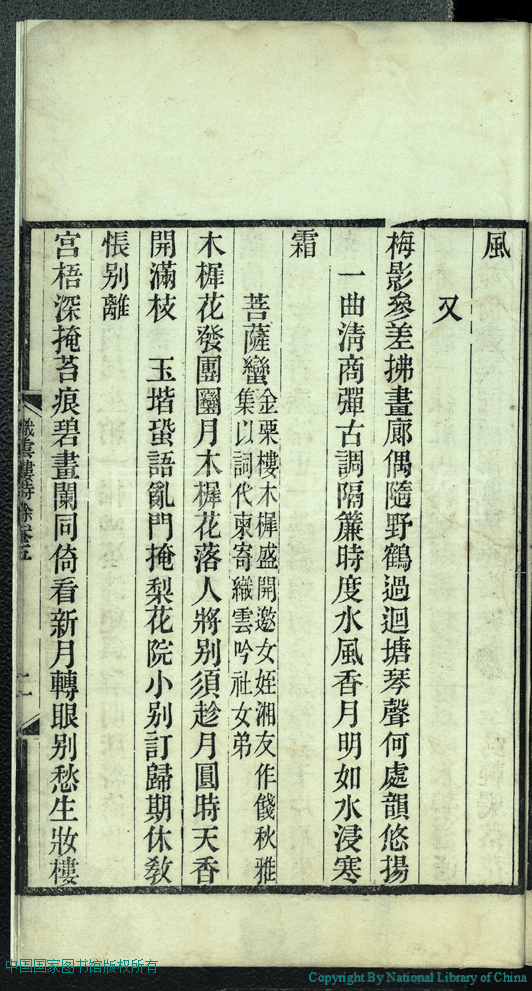 風
又
梅影參差拂畫廊偶隨野鶴過迴塘琴聲何處韻悠揚
一曲淸商彈古調隔簾時度水風香月明如水浸寒
霜
菩薩蠻金粟樓木樨盛開邀女姪湘友作餞秋雅
集以詞代柬寄織雲吟社女弟
木樨花發團圞月木樨花落人將别須趁月圓時天香
開滿枝　玉堦蛩語亂門掩梨花院小别訂歸期休敎
悵别離
宮梧深掩苔痕碧畫闌同倚看新月轉眼别愁生妝樓
織雲樓詩餘卷五
二
中国国家图书馆版权所有
Copyright By National Library of China